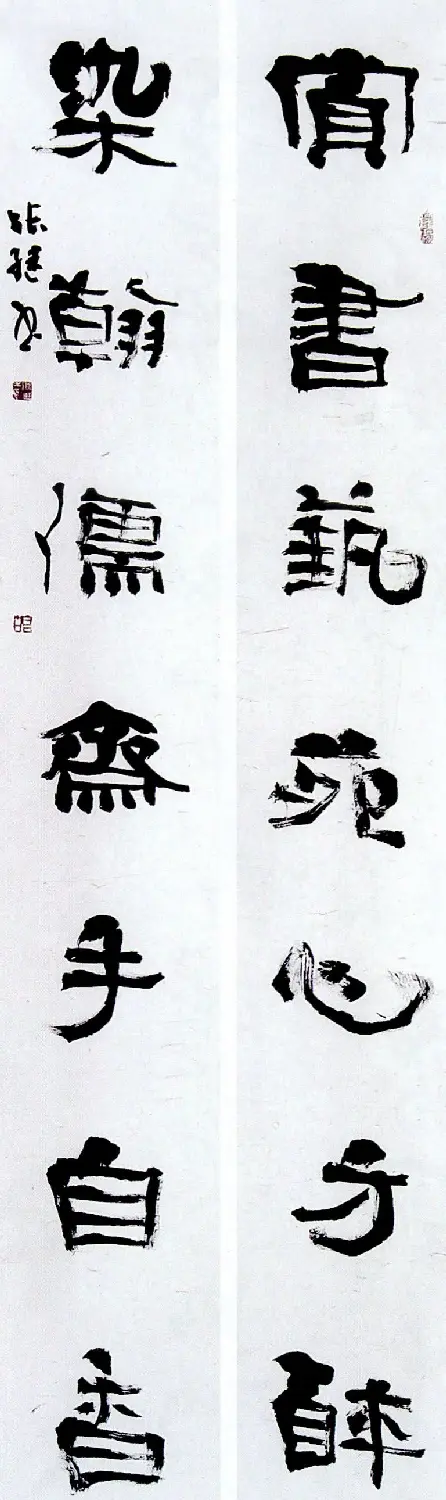 賞書藝苑心方醉
染翰儒齋手自香
張繼書